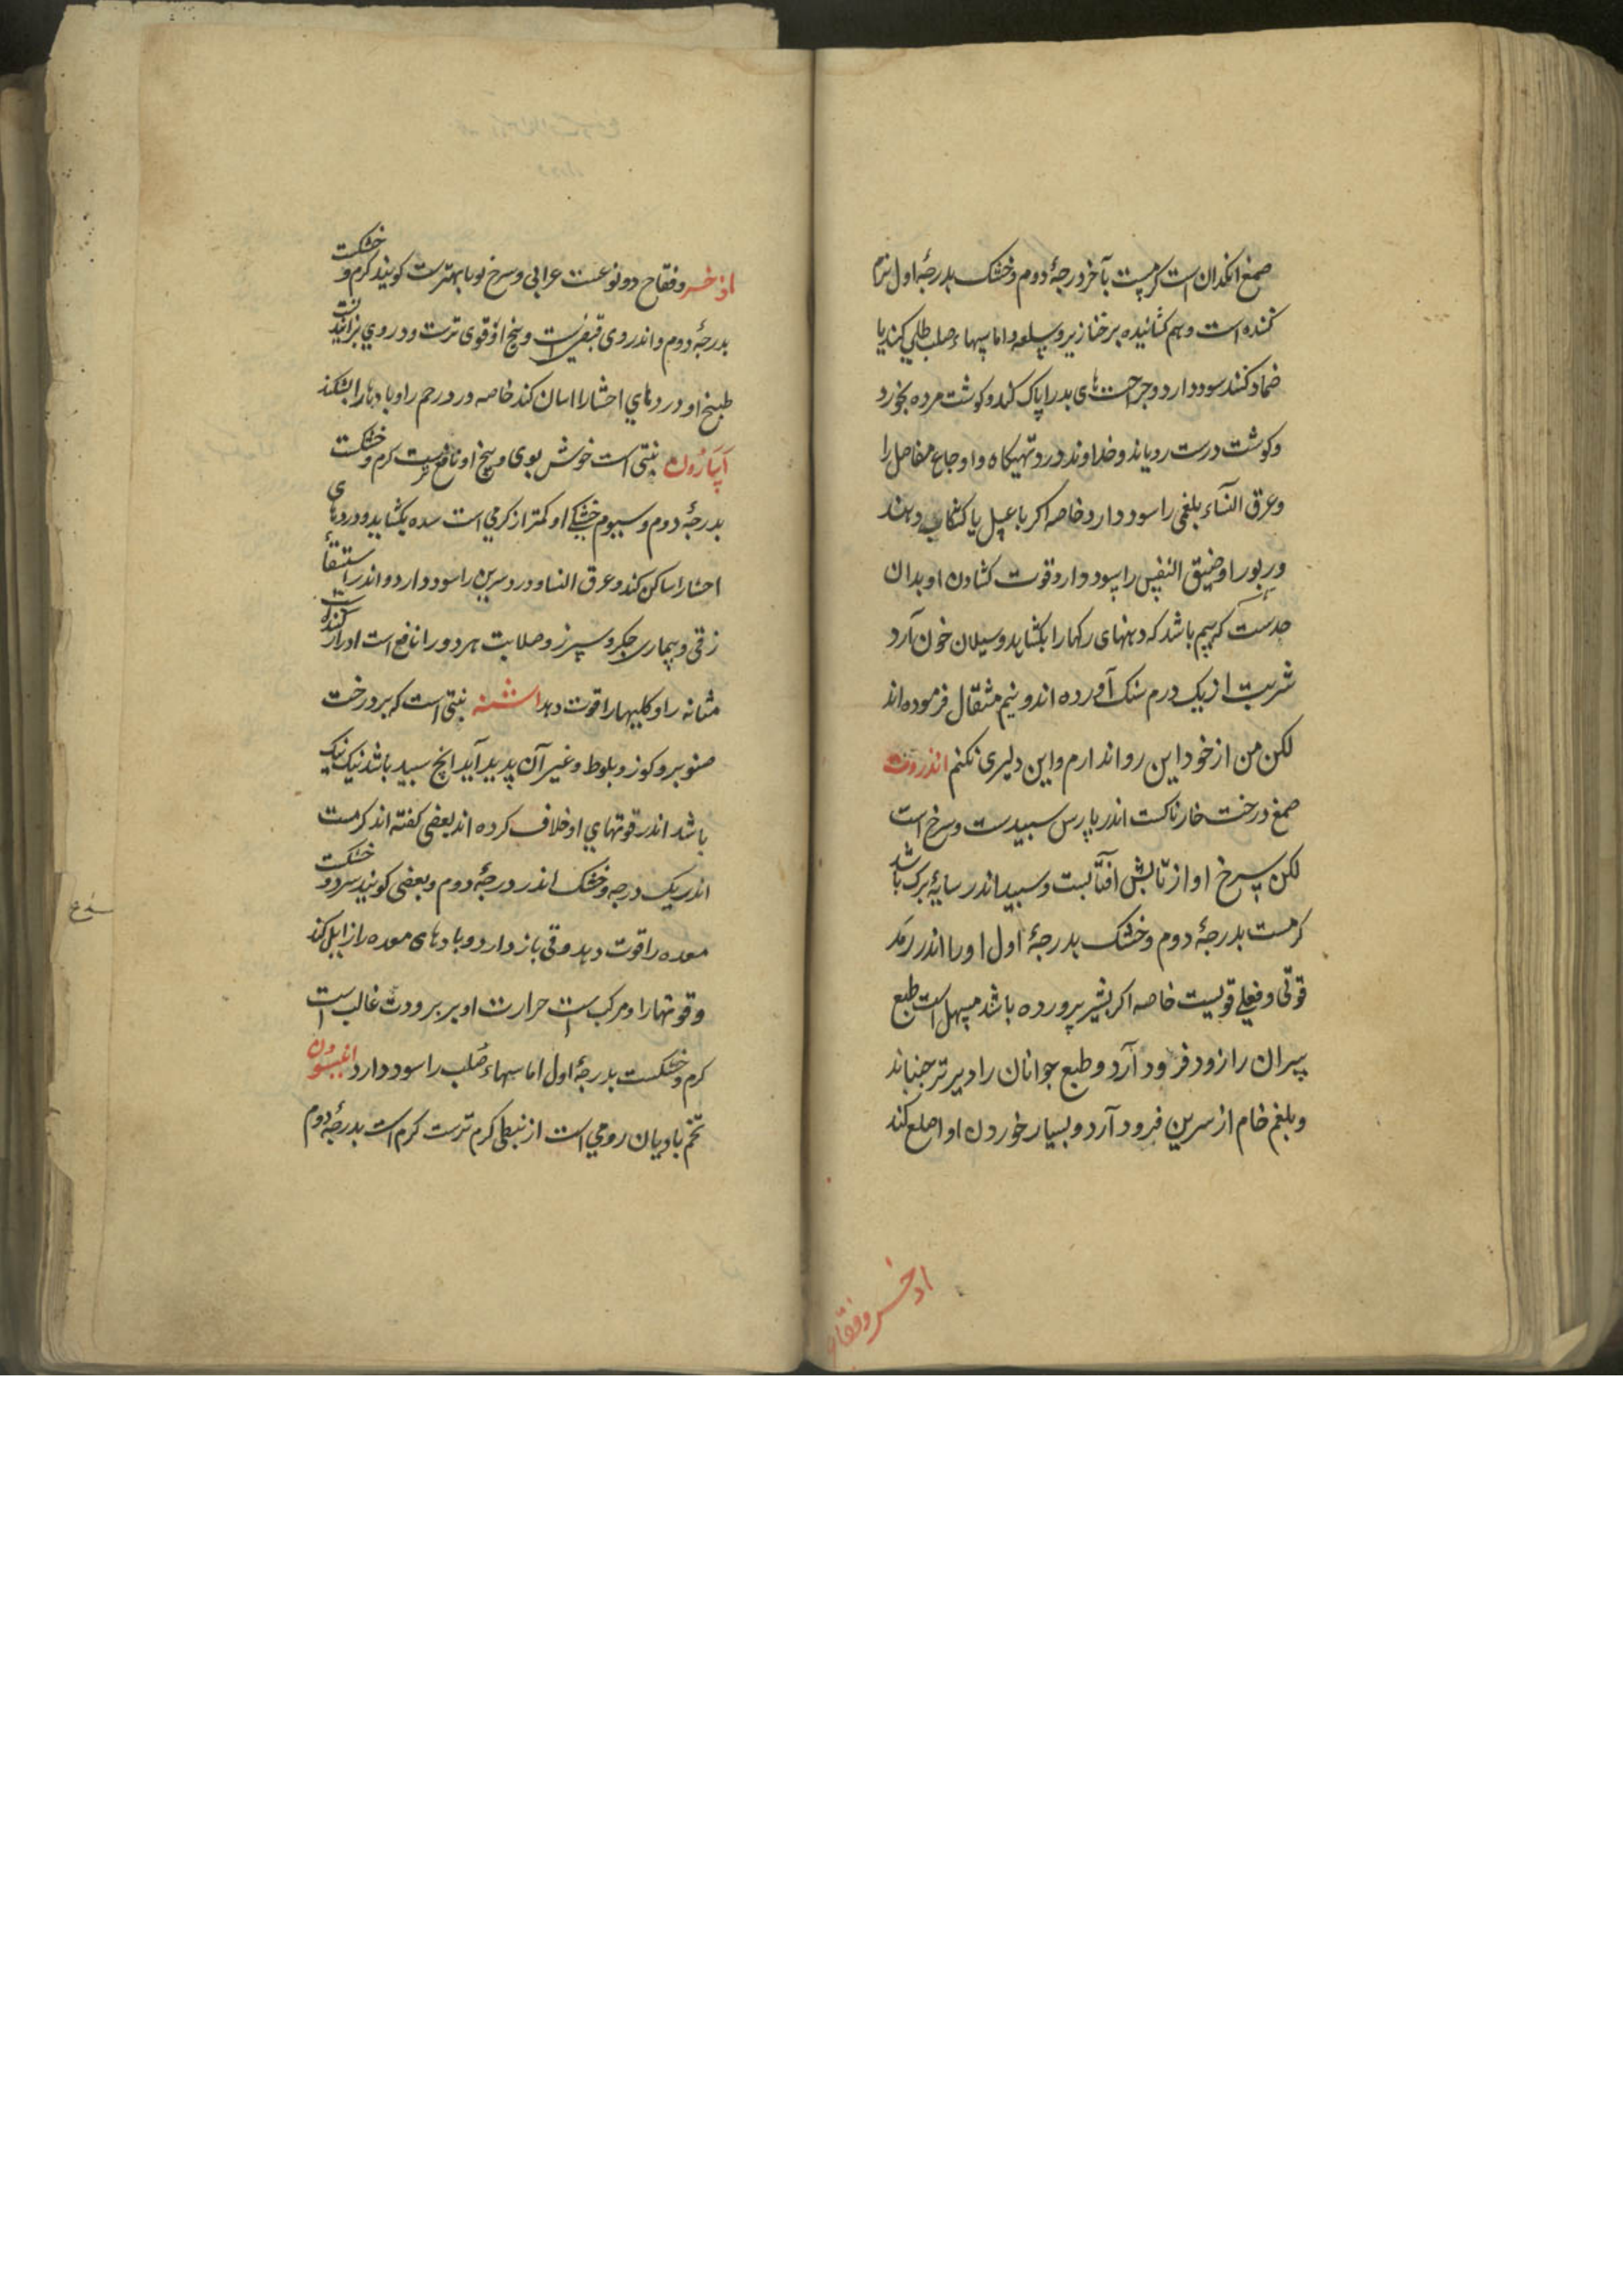 صمغ انکدان است کرمست بآخر درجهٔ دوم و خشک بدرجهٔ اول نرم
کننده است و هم کشائیده بر خنازیر و سلعه و اماسهاء صلب طلی کنند یا
ضماد کنند سود دارد و جراحت‌های بد را پاک کند و کوشت مرده بخورد
و کوشت درست رویاند و خداوند درد تهیکاه و اوجاع مفاصل را
و عرق النساء بلغمی را سود دارد خاصه اکر با عسل یا کشکاب دهند
و ربو را و ضیق النفس را سود دارد و قوت کشادن او بدان
حدست که بیم باشد که دهنهای رکها را بکشاید و سیلان خون آرد
شربت از یک درم سنک آورده اند و نیم مثقال فرموده اند
لکن من از خود این روا ندارم و این دلیری نکنم انذروت
صمغ درخت خارناکست اندر پارس سبیدست و سرخ است
لکن سرخ او از تابش افتابست و سبید اندر سایهٔ برک باشد
کرمست بدرجهٔ دوم و خشک بدرجهٔ اول او را اندر رمد
قوتی و فعلی قویست خاصه اکر بشیر پرورده باشد مسهل است طبع
پیران را زود فرود آرد و طبع جوانان را دیرتر جنباند
و بلغم خام از سرین فرود آرد و بسیار خوردن او اصلع کند
اذخر و فقاح
اذخر و فقاح دو نوعست عرابی و سرخ نوبا بهترست کویند کرم و خشکست
بدرجهٔ دوم و اندر وی قبض است و بیخ او قوی ترست و در روی بزایند
طبیخ او دردهای احشا را اسان کند خاصه درد رحم را و بادها را بشکند
اسارون نبتی است خوش بوی و بیخ او نافع ترست کرم و خشکست
بدرجهٔ دوم و سیوم خشکی او کمتر از کرمی است سده بکشاید و دردهای
احشا را ساکن کند و عرق النسا و درد سرین را سود دارد و اندر استسقأ
زقی و بیماری جکر و سپرز و صلابت هر دو را نافع است ادرار کننده است
مثانه را و کلیها را قوت دهد اشنه نبتی است که بر درخت
صنوبر و کوز و بلوط و غیر آن پدید آید انچ سبید باشد نیک نیک
باشد اندر قوتهای او خلاف کرده اند بعضی کفته اند کرمست
اندر یک درجه و خشک اندر درجهٔ دوم و بعضی کویند سرد و خشکست
معده را قوت دهد و قی باز دارد و بادهای معده را زایل کند
و قوتها را و مرکب است حرارت او بر برودت غالب است
کرم و خشکست بدرجهٔ اول اماسهاء صلب را سود دارد انیسون
تخم بادیان رومی است از نبطی کرم ترست کرم است بدرجهٔ دوم